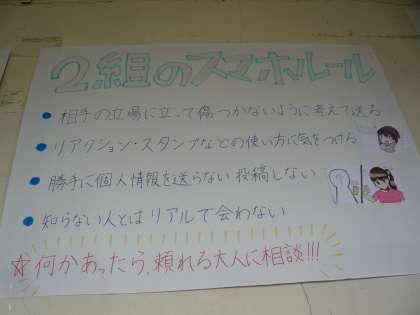 2組のスマホルール
● 相手の立場に立って傷つかないように考えて送る
● リアクション・スタンプなどの使い方に気をつける
● 勝手に個人情報を送らない 投稿しない
● 知らない人とはリアルで会わない
☆ 何かあったら、頼れる大人に相談!!!